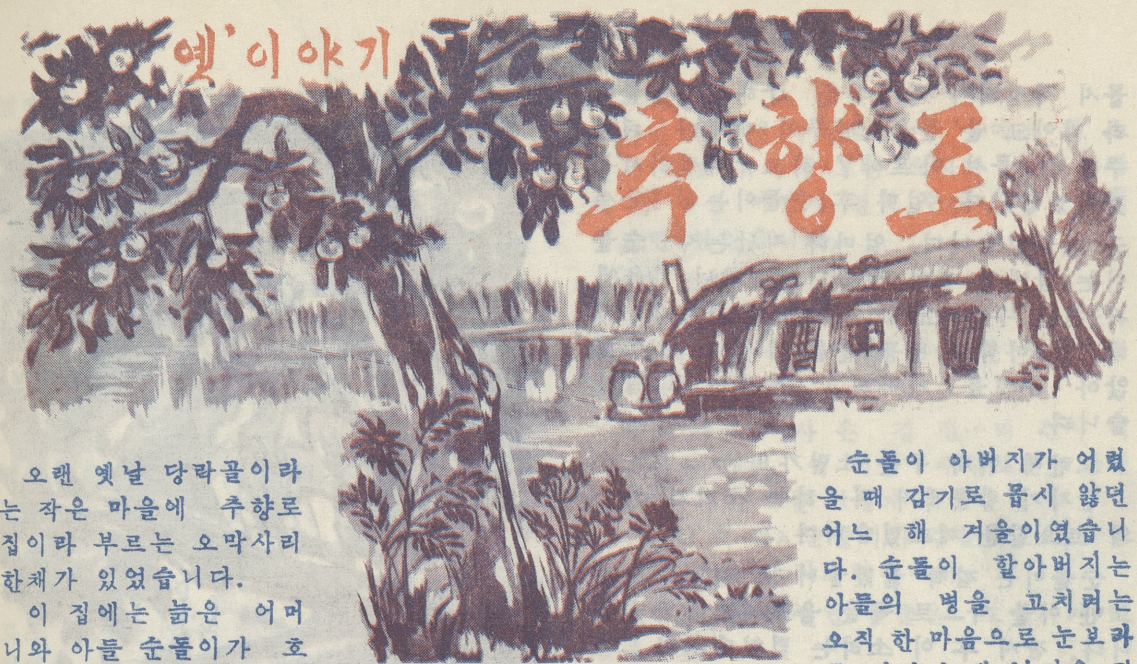 옛'이야기
추향도
오랜 옛날 당락골이라
는 작은 마을에 추향로
집이라 부르는 오막사리
한채가 있었습니다.
이 집에는 늙은 어머
니와 아들 순돌이가 호
순돌이 아버지가 어렸
을 때 감기로 몹시 앓던
어느 해 겨울이였습니
다. 순돌이 할아버지는
아들의 병을 고치려는
오직 한 마음으로 눈보라